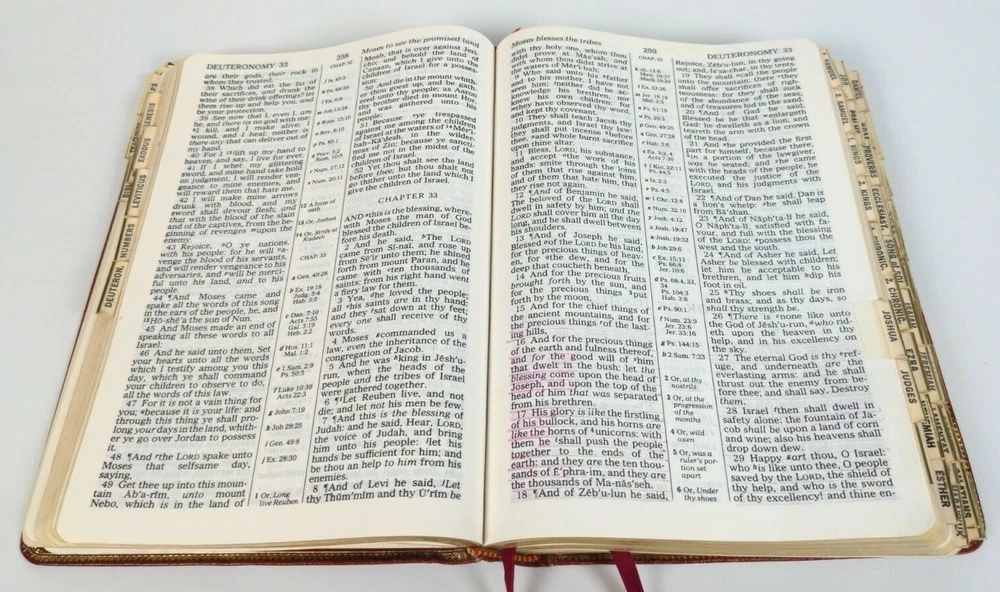 DEUTERONOMY 33
258
Moses to see the promised land
are their gods, their rock in
whom they trusted,
38 Which did eat the fat of
their sacrifices, and drank the
wine of their drink offerings? let
them rise up and help you, and
be your protection.
39 See now that I, even I, am
he, and there is no god with me:
I kill, and I make alive; I
wound, and I heal: neither is
there any that can deliver out of
my hand.
40 For I lift up my hand to
heaven, and say, I live for ever.
41 If I whet my glittering
sword, and mine hand take hold
on judgment; I will render ven-
geance to mine enemies, and
will reward them that hate me.
42 I will make mine arrows
drunk with blood, and my
sword shall devour flesh; and
that with the blood of the slain
and of the captives, from the be-
ginning of revenges upon the
enemy.
43 Rejoice, O ye nations,
with his people: for he will a-
venge the blood of his servants,
and will render vengeance to his
adversaries, and will be merci-
ful unto his land, and to his
people.
44 ¶And Moses came and
spake all the words of this song
in the ears of the people, he, and
Hō-shē'a the son of Nun.
45 And Moses made an end of
speaking all these words to all
Israel:
46 And he said unto them, Set
your hearts unto all the words
which I testify among you this
day, which ye shall command
your children to observe to do,
all the words of this law.
47 For it is not a vain thing for
you; because it is your life: and
through this thing ye shall pro-
long your days in the land, whith-
er ye go over Jordan to possess
it.
48 ¶And the LORD spake unto
Moses that selfsame day,
saying,
49 Get thee up into this moun-
tain Ăb'a-rĭm, unto mount
Nebo, which is in the land of
CHAP. 33
a Gen. 49:28
b Ex. 19:18
Judg. 5:4
Hab. 3:3
c Dan. 7:10
Acts 7:53
Gal. 3:19
Heb. 2:2
d Hos. 11:1
Mal. 1:2
e 1 Sam. 2:9
Ps. 50:5
f Luke 10:39
Acts 22:3
a John 7:19
b Job 29:25
i Gen. 49:8
j Ex. 28:30
1 Or, Long
live Reuben
Moab, that is over against Jeri-
cho; and behold the land of
Canaan, which I give unto the
children of Israel for a posses-
sion:
50 And die in the mount whith-
er thou goest up, and be gath-
ered unto thy people; as Aaron
thy brother died in mount Hor,
and was gathered unto his
people:
51 Because ye trespassed
against me among the children
of Israel at the waters of Mĕr'i-
bah-Kā'desh, in the wilder-
ness of Zin; because ye sancti-
fied me not in the midst of the
children of Israel.
52 Yet thou shalt see the land
before thee; but thou shalt not
go thither unto the land which I
give the children of Israel.
CHAPTER 33
AND this is the blessing, where-
with Moses the man of God
blessed the children of Israel be-
fore his death.
2 And he said, The LORD
came from Sī'naī, and rose up
from Sē'ir unto them; he shined
forth from mount Paran, and he
came with ten thousands of
saints: from his right hand went
a fiery law for them.
3 Yea, he loved the people;
all his saints are in thy hand:
and they sat down at thy feet;
every one shall receive of thy
words.
4 Moses commanded us a
law, even the inheritance of the
congregation of Jacob.
5 And he was king in Jĕsh'u-
run, when the heads of the
people and the tribes of Israel
were gathered together.
6 ¶Let Reuben live, and not
die; and let not his men be few.
7 ¶And this is the blessing of
Judah: and he said, Hear, LORD,
the voice of Judah, and bring
him unto his people: let his
hands be sufficient for him; and
be thou an help to him from his
enemies.
8 ¶And of Levi he said, Let
thy Thŭm'mĭm and thy Ū'rĭm be
Moses blesses the tribes
259
DEUTERONOMY 33
with thy holy one, whom thou
didst prove at Măs'sah, and
with whom thou didst strive at
the waters of Mĕr'i-bah;
9 Who said unto his father
and to his mother, I have not
seen him; neither did he ac-
knowledge his brethren, nor
knew his own children: for
they have observed thy word,
and kept thy covenant.
10 They shall teach Jacob thy
judgments, and Israel thy law:
they shall put incense before
thee, and whole burnt sacrifice
upon thine altar.
11 Bless, LORD, his substance,
and accept the work of his
hands: smite through the loins
of them that rise against him,
and of them that hate him, that
they rise not again.
12 ¶And of Benjamin he said,
The beloved of the LORD shall
dwell in safety by him; and the
LORD shall cover him all the day
long, and he shall dwell between
his shoulders.
13 ¶And of Joseph he said,
Blessed of the LORD be his land,
for the precious things of heav-
en, for the dew, and for the
deep that coucheth beneath,
14 And for the precious fruits
brought forth by the sun, and
for the precious things put
forth by the moon,
15 And for the chief things of
the ancient mountains, and for
the precious things of the last-
ing hills,
16 And for the precious things
of the earth and fulness thereof,
and for the good will of him
that dwelt in the bush: let the
blessing come upon the head of
Joseph, and upon the top of the
head of him that was separated
from his brethren.
17 His glory is like the firstling
of his bullock, and his horns are
like the horns of unicorns: with
them he shall push the people
together to the ends of the
earth: and they are the ten thou-
sands of Ē'phra-im, and they are
the thousands of Ma-năs'seh.
18 ¶And of Zĕb'u-lun he said,
2 Or, at thy
nostrils
3 Or, at the
progression
of the
months
4 Or, wild
oxen
5 Or, was a
ruler's por-
tion set
apart
6 Or, Under
thy shoes
Rejoice, Zĕb'u-lun, in thy going
out; and, Is'sa-char, in thy tents.
19 They shall call the people
unto the mountain; there they
shall offer sacrifices of right-
eousness: for they shall suck
of the abundance of the seas,
and of treasures hid in the sand.
20 ¶And of Gad he said,
Blessed be he that enlargeth
Gad: he dwelleth as a lion, and
teareth the arm with the crown
of the head.
21 And he provided the first
part for himself, because there,
in a portion of the lawgiver,
was he seated; and he came
with the heads of the people, he
executed the justice of the
LORD, and his judgments with
Israel.
22 ¶And of Dan he said, Dan is
a lion's whelp: he shall leap
from Bā'shan.
23 ¶And of Năph'ta-lī he said,
O Năph'ta-lī, satisfied with fa-
vour, and full with the blessing
of the LORD: possess thou the
west and the south.
24 ¶And of Asher he said, Let
Asher be blessed with children;
let him be acceptable to his
brethren, and let him dip his
foot in oil.
25 Thy shoes shall be iron
and brass; and as thy days, so
shall thy strength be.
26 ¶There is none like unto
the God of Jĕsh'u-run, who rid-
eth upon the heaven in thy
help, and in his excellency on
the sky.
27 The eternal God is thy ref-
uge, and underneath are the
everlasting arms: and he shall
thrust out the enemy from be-
fore thee; and shall say, Destroy
them.
28 Israel then shall dwell in
safety alone: the fountain of Ja-
cob shall be upon a land of corn
and wine; also his heavens shall
drop down dew.
29 Happy art thou, O Israel:
who is like unto thee, O people
saved by the LORD, the shield of
thy help, and who is the sword
of thy excellency! and thine en-
EXODUS
LEVITICUS
NUMBERS
DEUTERON.
JOSHUA
JUDGES
EZRA
ESTHER
PROVERBS
ECCLESIAST.
2. KINGS